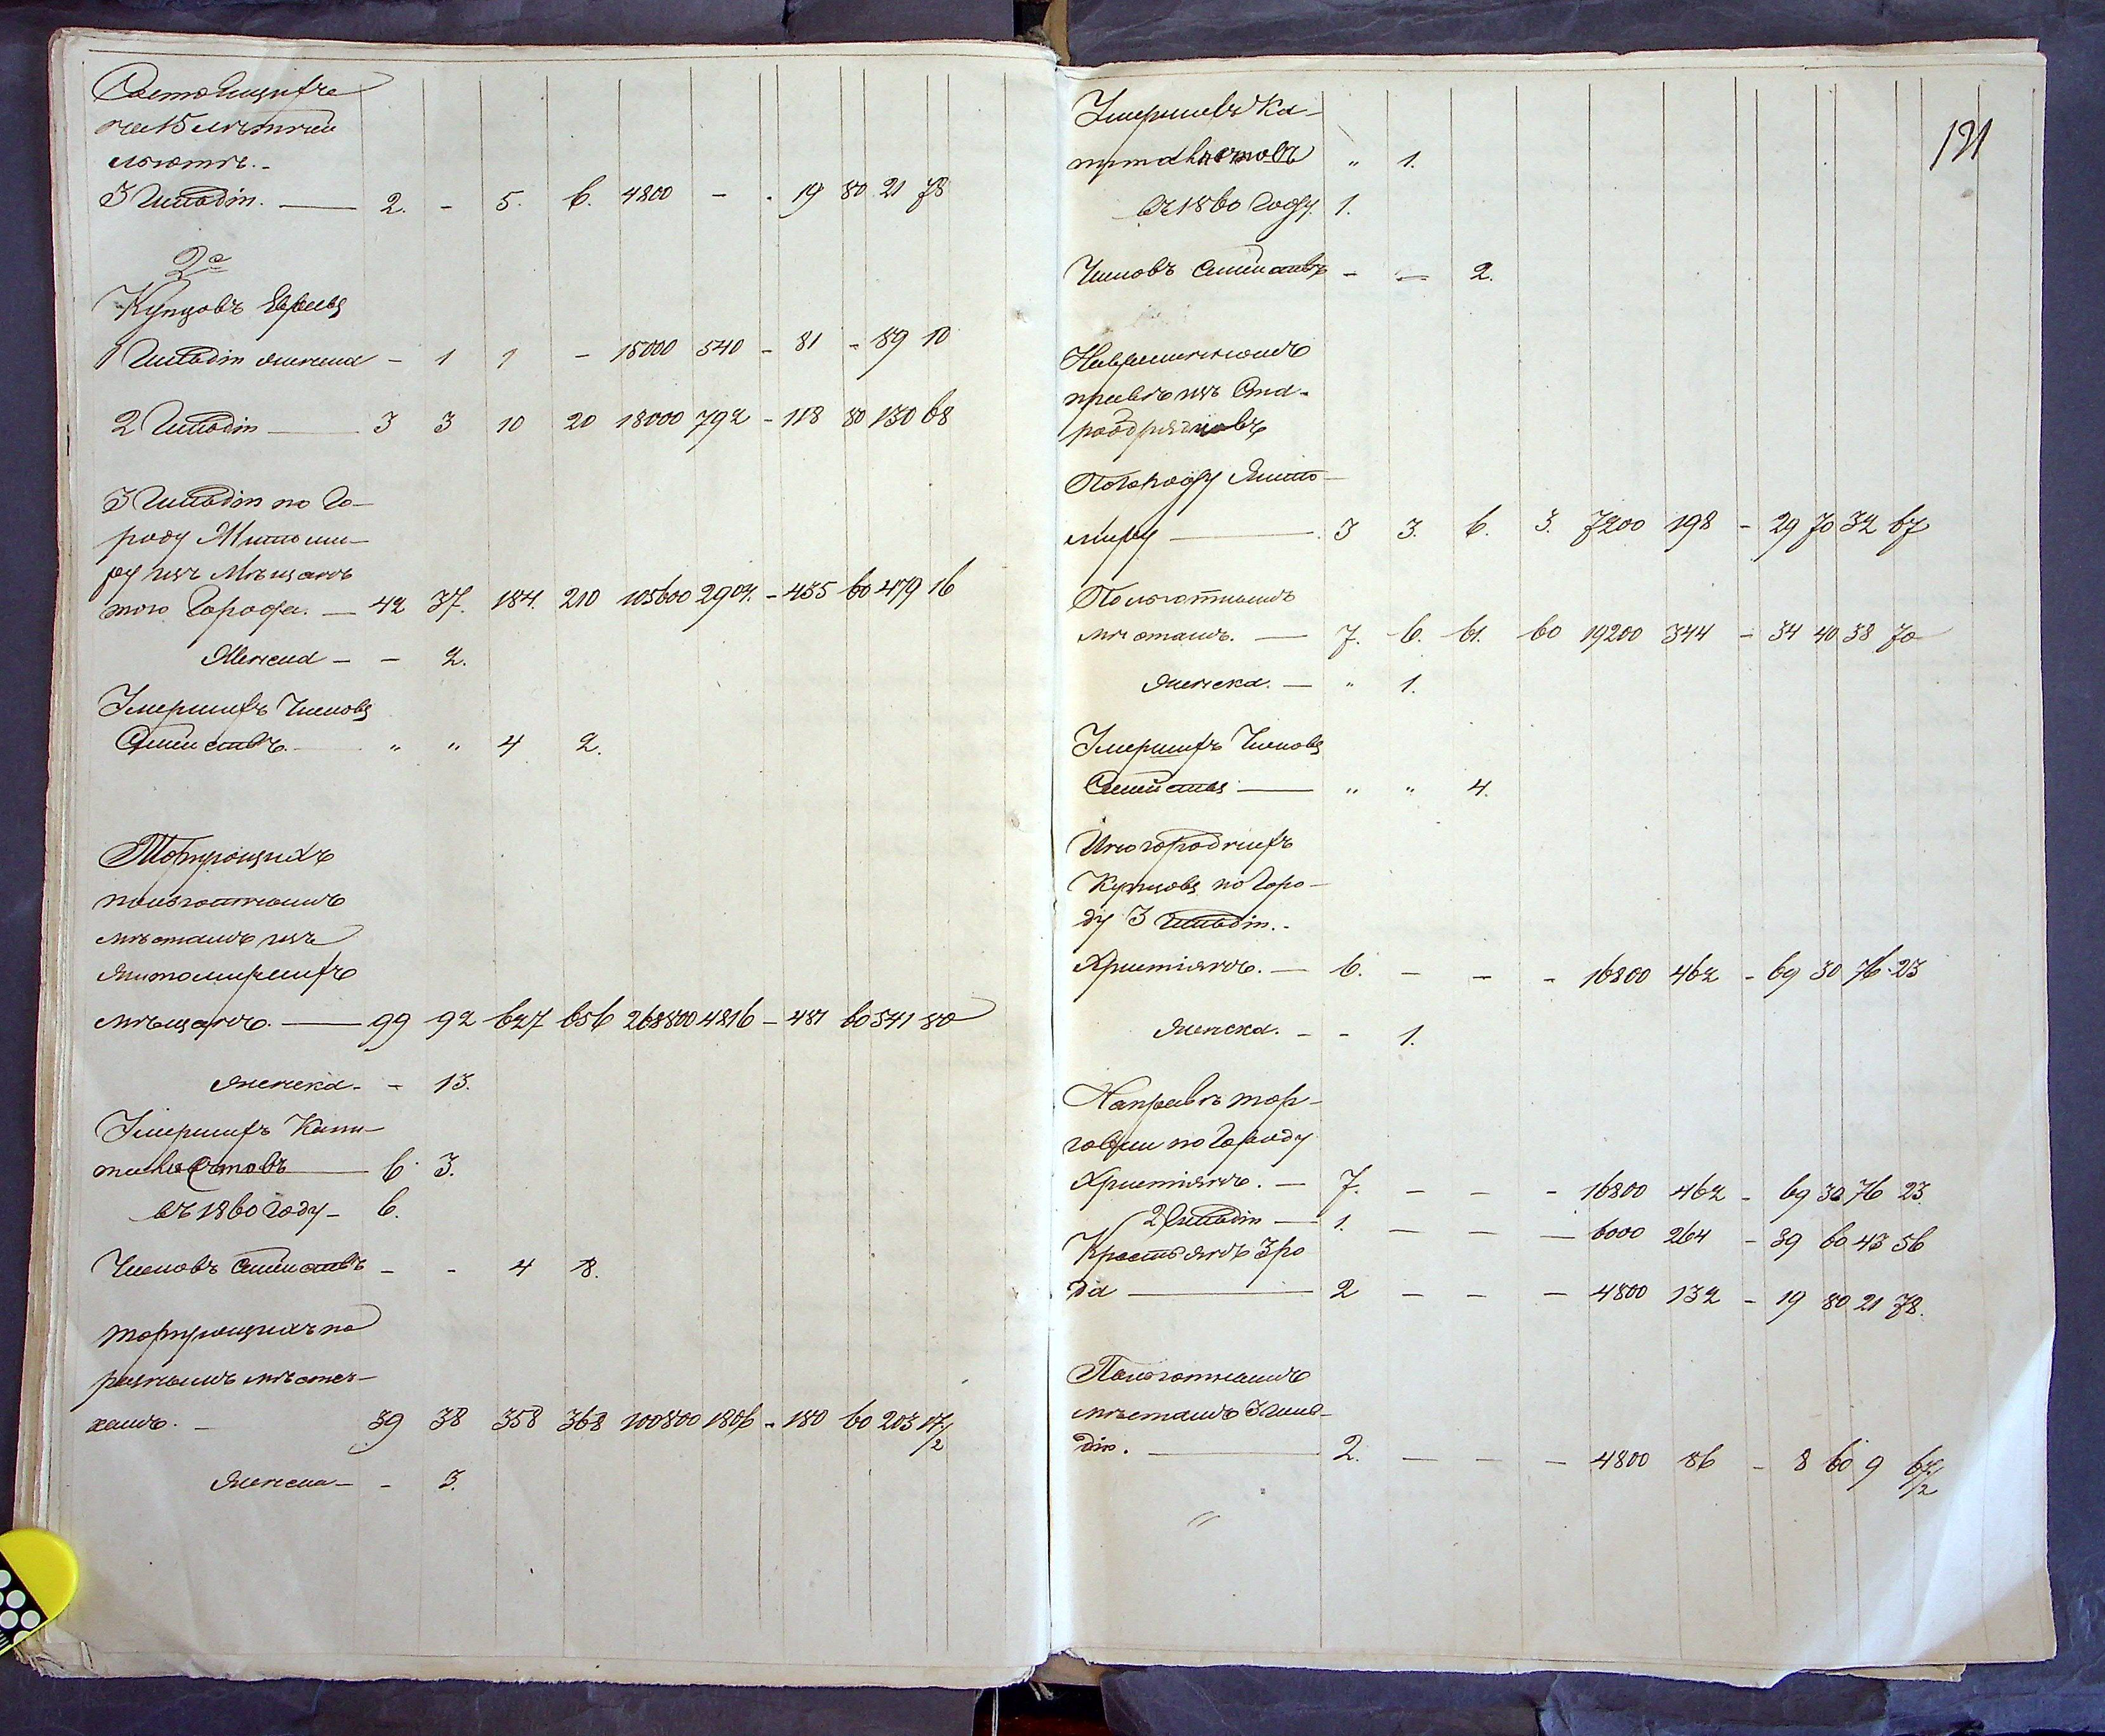 Состоящихъ
на 15 летней
льготе.-
3 Гильдіи. — 2. - 5. 6. 4800 - - 19 80 21 78
2е
Купцовъ Евреевъ
1 Гильдіи женска - 1 1 - 15000 540 - 81 - 89 10
2 Гильдіи — 3 3 10 20 18000 792 - 118 80 130 68
3 Гильдіи по Го-
роду Житоми-
ру изъ Мещанъ
того Города. — 42 37. 184. 210 105600 2904. - 435 60 479 16
Женска - - 2.
Умершихъ Членовъ
Семействъ — " " 4 2.
Торгующихъ
по льготнымъ
местамъ изъ
Житомирскихъ
мещанъ. — 99 92 627 656 268800 4816 - 481 60 541 80
женска. - 13.
Умершихъ Капи-
талистовъ — 6. 3.
въ 1860 Году - 6.
Членовъ Семействъ - - 4 8.
торгующихъ по
разнымъ местеч-
камъ. - 39 38 358 368 100800 1806 - 180 60 203 17 1/2
Женска - - 3.
121
Умершихъ Ка-
питалистовъ " 1.
въ 1860 Году. 1.
Членовъ Семействъ - - 2.
На временномъ
праве изъ Ста-
рообрядцовъ
По городу Жито-
миру — 3 3. 6. 3. 7200 198 - 29 70 32 67
По льготнымъ
местамъ. — 7. 6. 61. 60 19200 344 - 34 40 38 70
Женска. — " 1.
Умершихъ Членовъ
Семействъ — " " 4.
Иногороднихъ
Купцовъ по Горо-
ду 3 Гильдіи.-
Христіянъ. — 6. - - - 16800 462 - 69 30 76 23
Женска. - - 1.
На праве тор-
говли по Городу
Христіянъ. — 7. - - - 16800 462 - 69 30 76 23
2 Гильдіи — 1. - - - 6000 264 - 39 60 43 56
Крестьянъ 3 ро
да — 2 - - - 4800 132 - 19 80 21 78.
По льготнымъ
местамъ 3 Гиль-
діи. — 2. - - - 4800 86 - 8 60 9 67 1/2